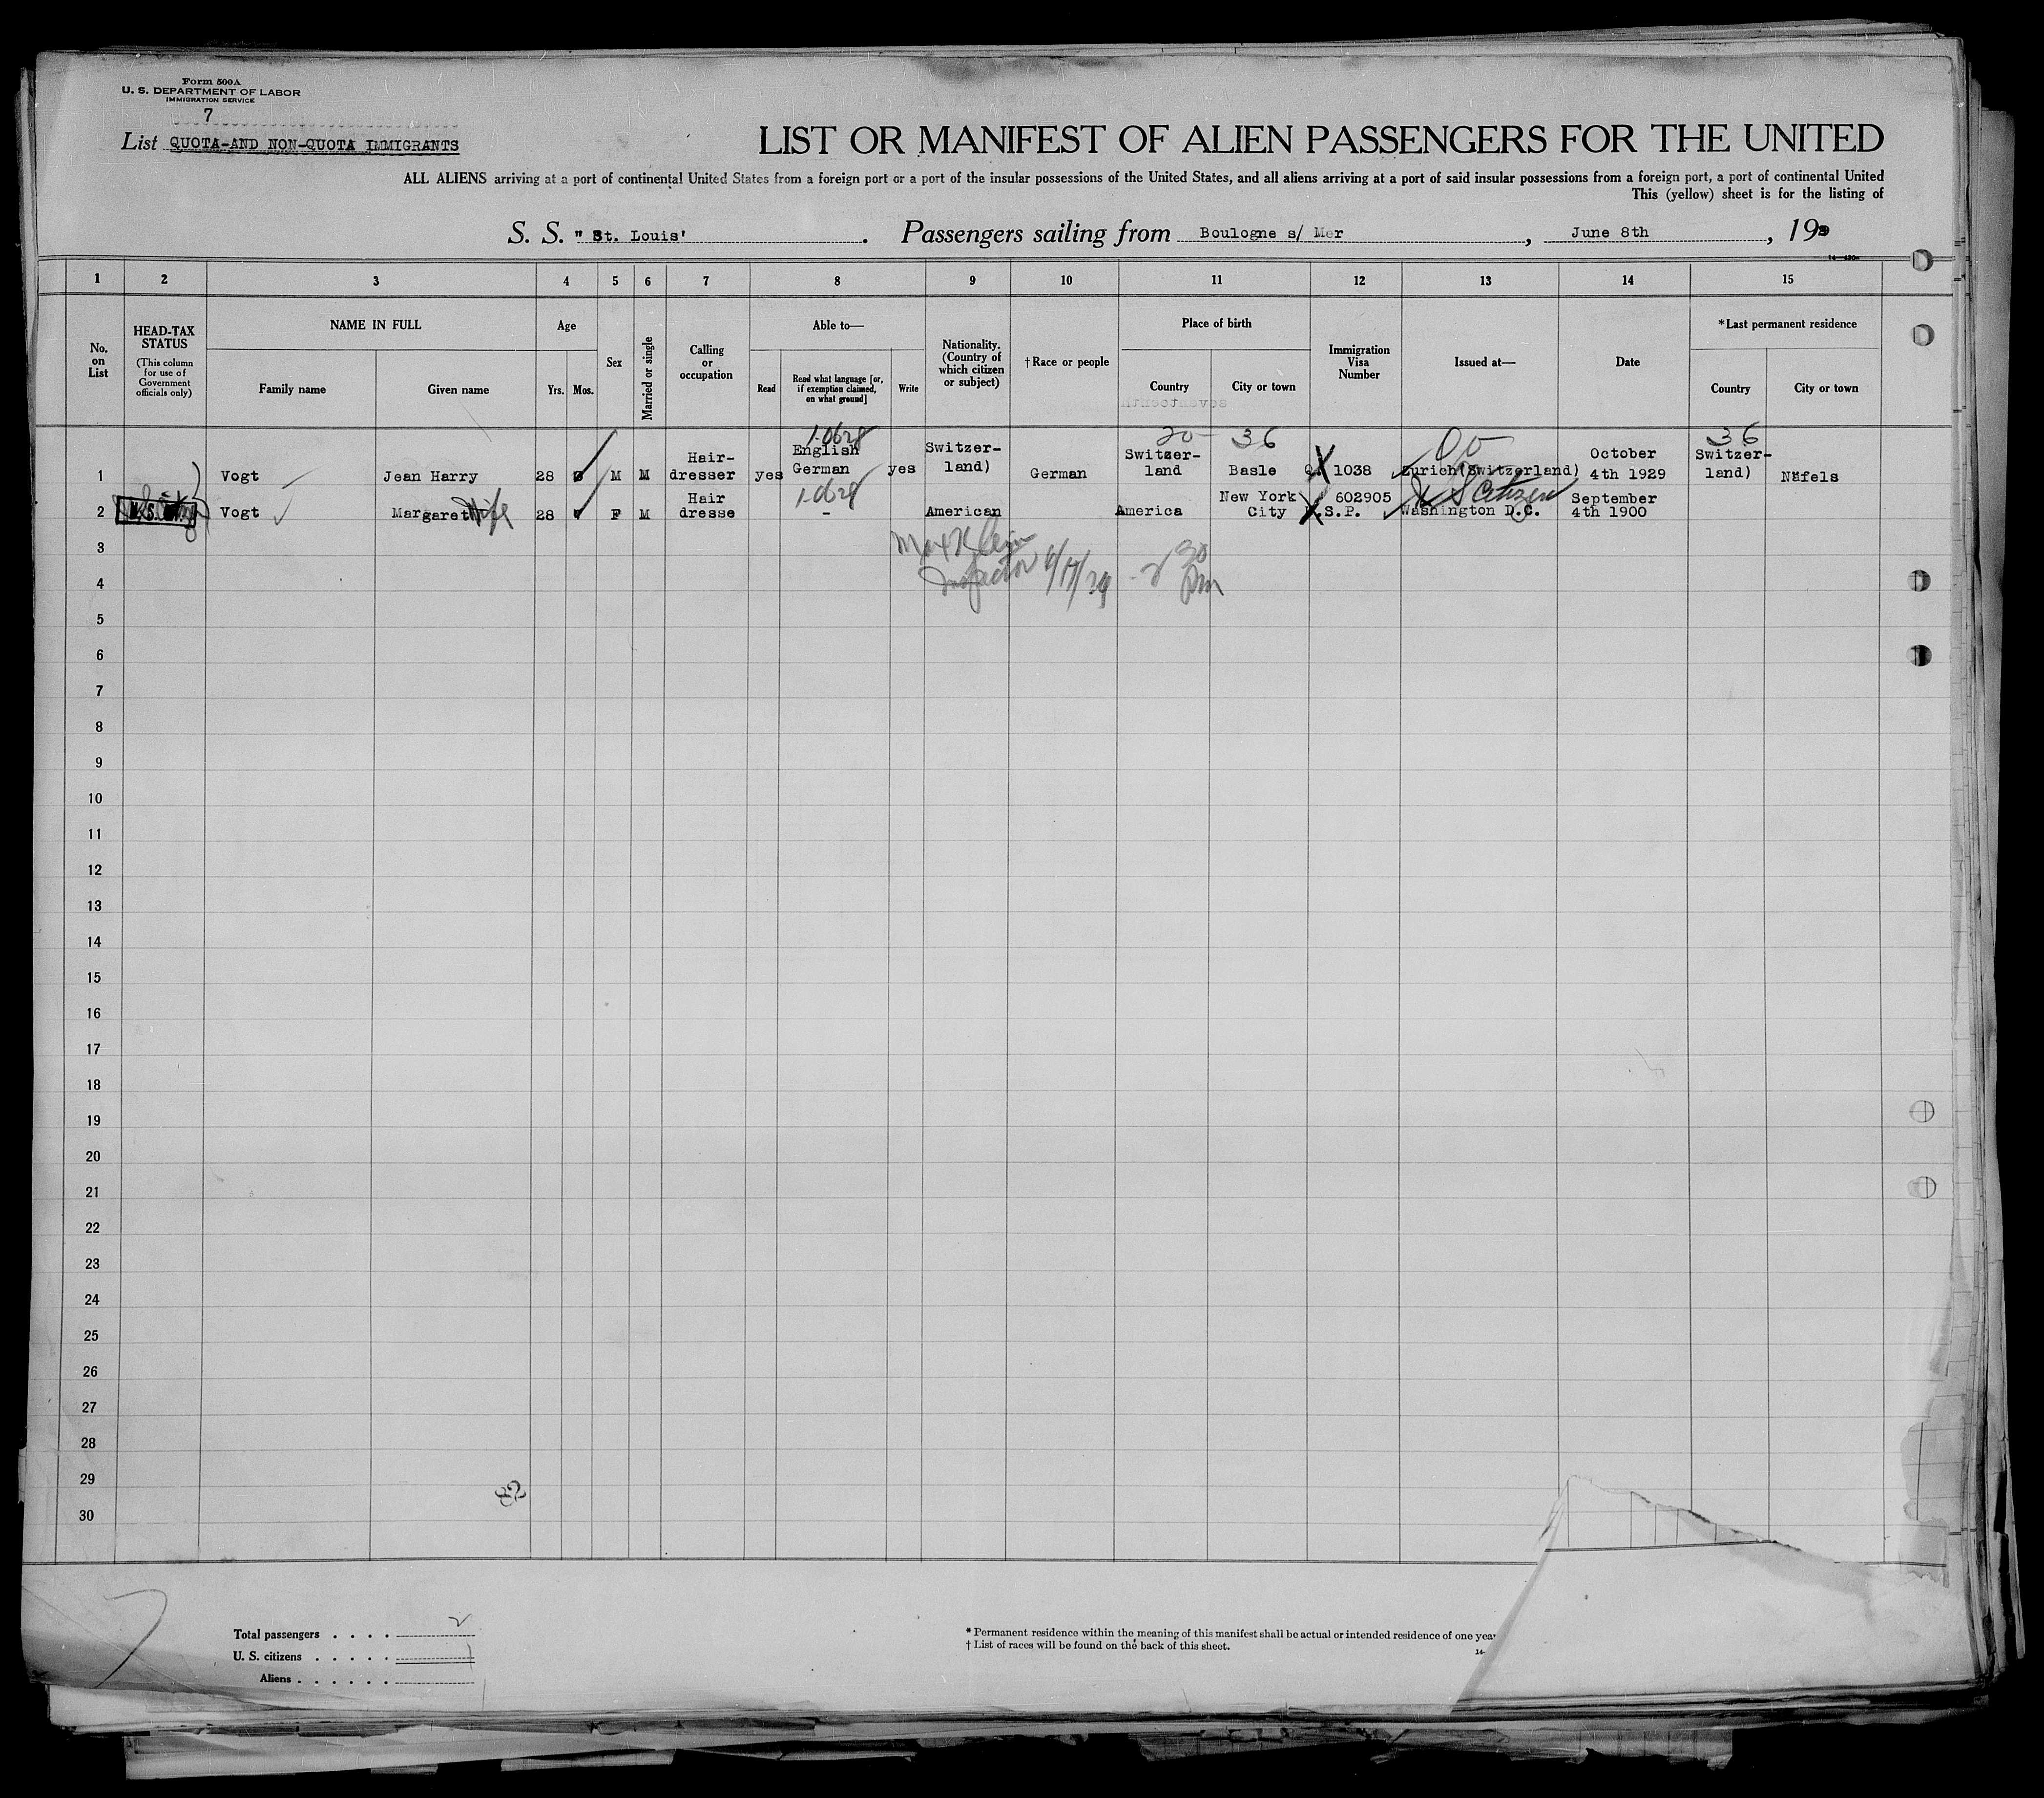 Form 500A
U. S. DEPARTMENT OF LABOR
IMMIGRATION SERVICE
7
List QUOTA-AND NON-QUOTA IMMIGRANTS
LIST OR MANIFEST OF ALIEN PASSENGERS FOR THE UNITED
ALL ALIENS arriving at a port of continental United States from a foreign port or a port of the insular possessions of the United States, and all aliens arriving at a port of said insular possessions from a foreign port, a port of continental United
This (yellow) sheet is for the listing of
S. S. " St. Louis' . Passengers sailing from Boulogne s/ Mer , June 8th , 19
1 2 3 4 5 6 7 8 9 10 11 12 13 14 15
No. on List
HEAD-TAX STATUS
(This column for use of Government officials only)
NAME IN FULL
Family name
Given name
Age
Yrs.
Mos.
Sex
Married or single
Calling or occupation
Able to—
Read
Read what language [or, if exemption claimed, on what ground]
Write
Nationality. (Country of which citizen or subject)
† Race or people
Place of birth
Country
City or town
Immigration Visa Number
Issued at—
Date
*Last permanent residence
Country
City or town
20 36 36
1 Vogt Jean Harry 28 M M Hair-dresser yes English German yes Switzer-land) German Switzer-land Basle 1038 Zurich(Switzerland) October 4th 1929 Switzer-land) Näfels
2 Vogt Margaret Wife 28 F M Hair dresse - American America New York City .S.P. 602905 U S Citizen Washington D.C. September 4th 1900
Inspector 6/17/29 2 30 pm
3
4
5
6
7
8
9
10
11
12
13
14
15
16
17
18
19
20
21
22
23
24
25
26
27
28
29
30
82
7
Total passengers . . . . 2
U. S. citizens . . . . . 1
Aliens . . . . . . 1
* Permanent residence within the meaning of this manifest shall be actual or intended residence of one year
† List of races will be found on the back of this sheet.